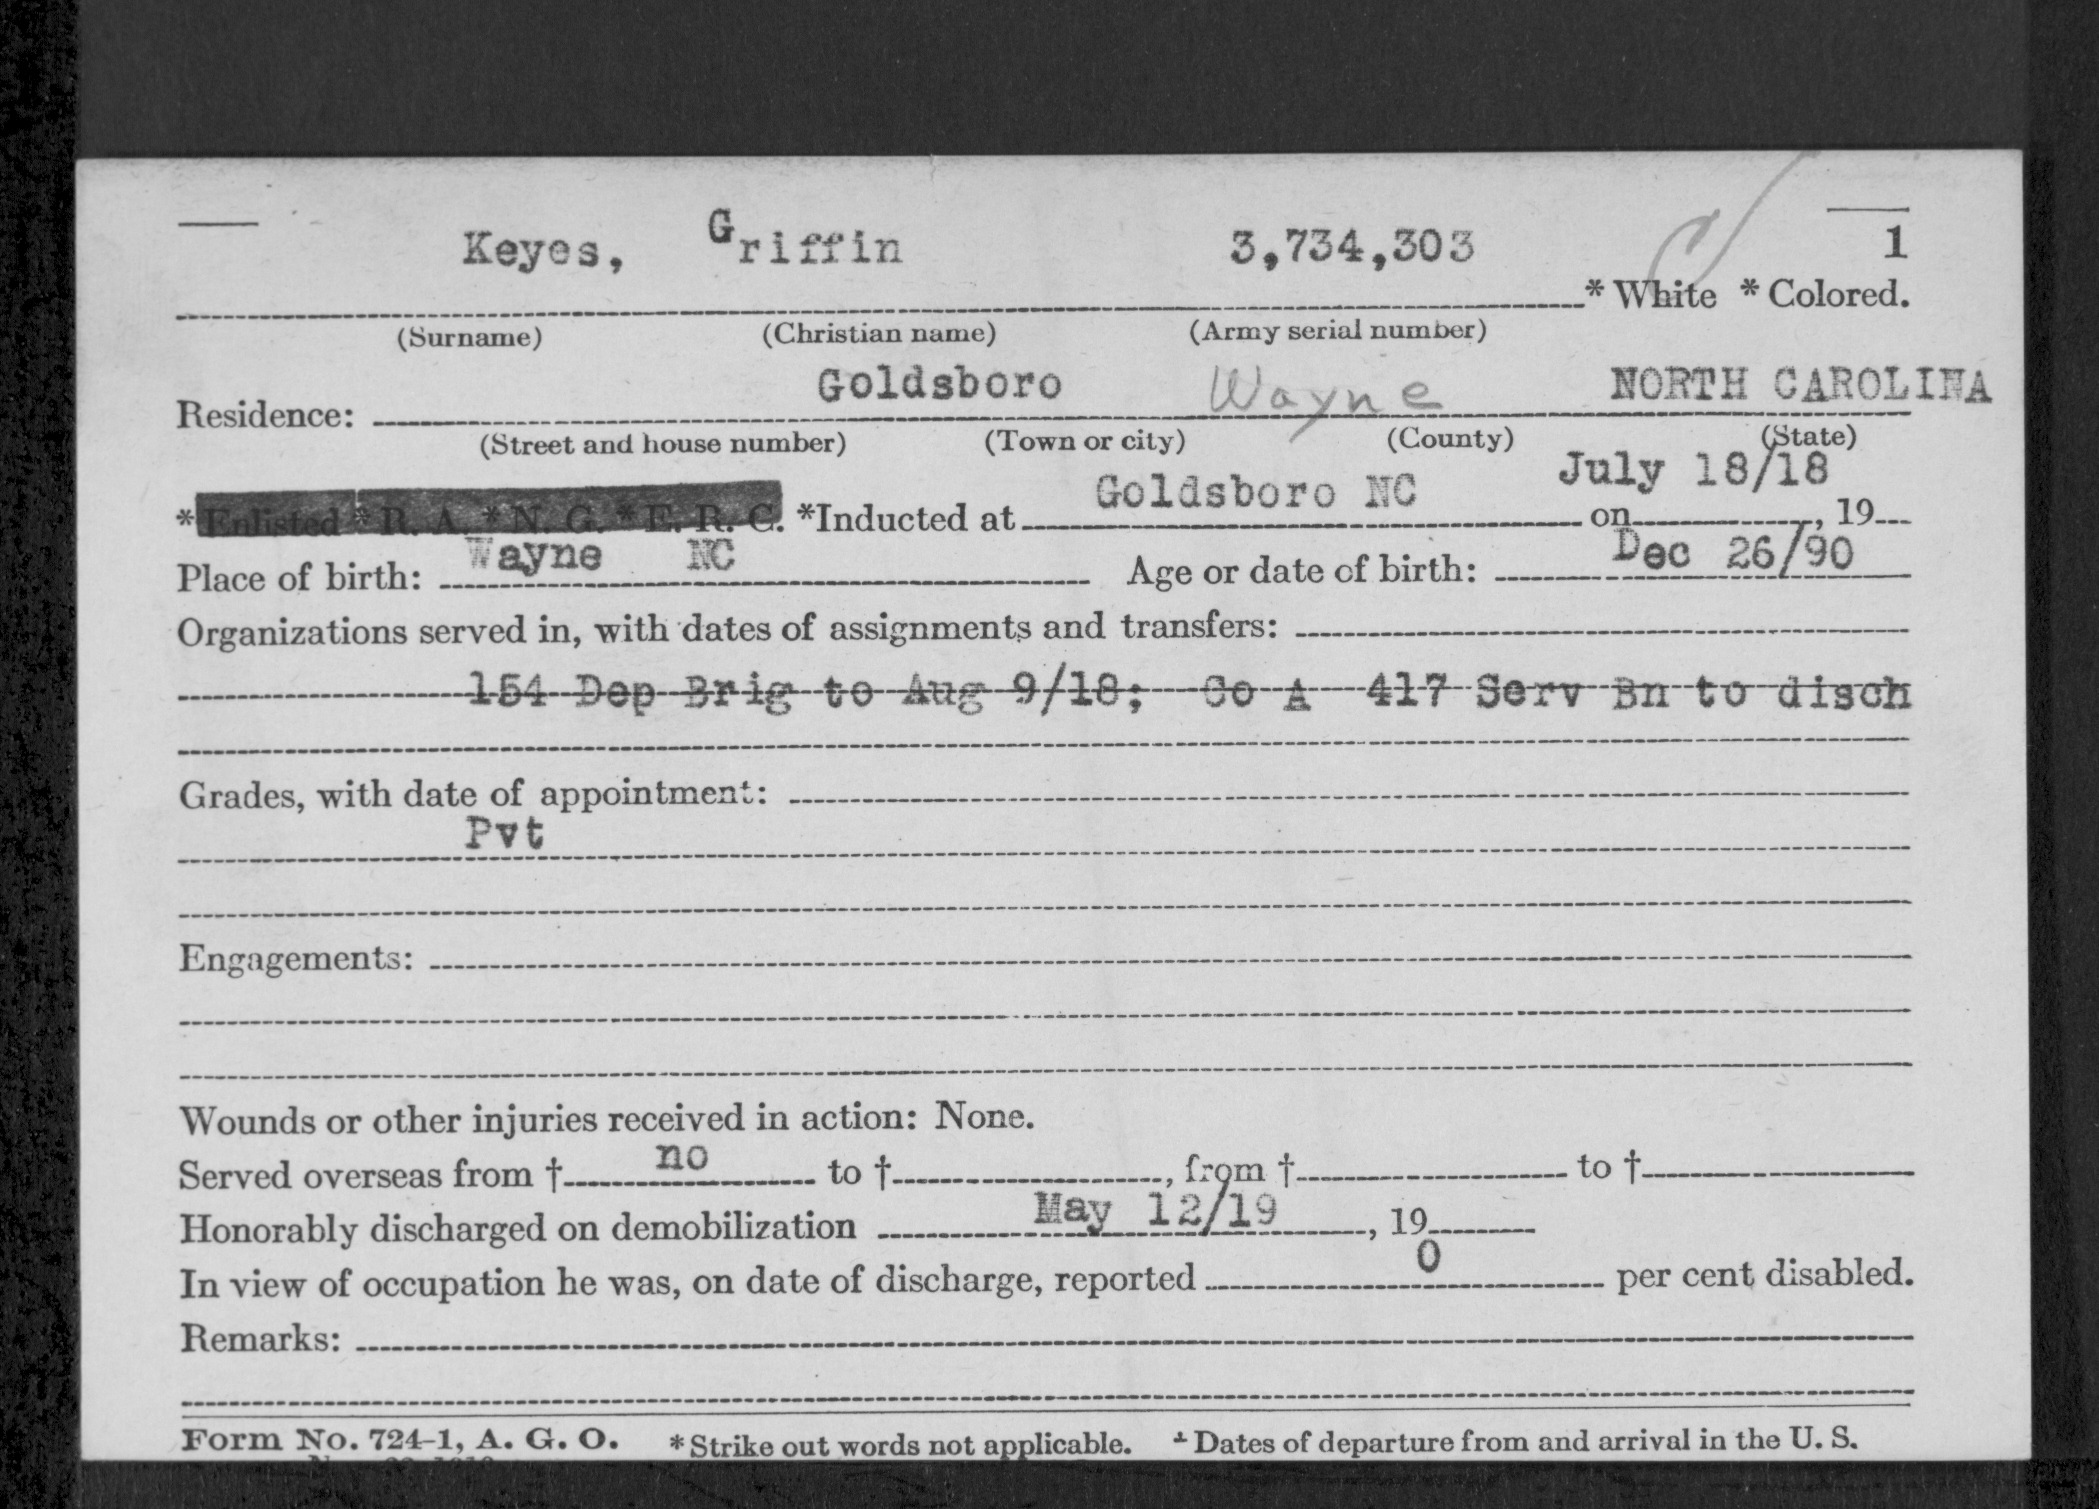 Keyes, Griffin 3,734,303 1
* White * Colored.
(Surname) (Christian name) (Army serial number)
Residence: Goldsboro Wayne NORTH CAROLINA
(Street and house number) (Town or city) (County) (State)
* Enlisted * R. A. * N. G. * E. R. C. *Inducted at Goldsboro NC on July 18/18, 19
Place of birth: Wayne NC Age or date of birth: Dec 26/90
Organizations served in, with dates of assignments and transfers:
154 Dep Brig to Aug 9/18; Co A 417 Serv Bn to disch
Grades, with date of appointment:
Pvt
Engagements:
Wounds or other injuries received in action: None.
Served overseas from † no to †, from † to †
Honorably discharged on demobilization May 12/19, 19
In view of occupation he was, on date of discharge, reported 0 per cent disabled.
Remarks:
Form No. 724-1, A. G. O. * Strike out words not applicable. † Dates of departure from and arrival in the U. S.